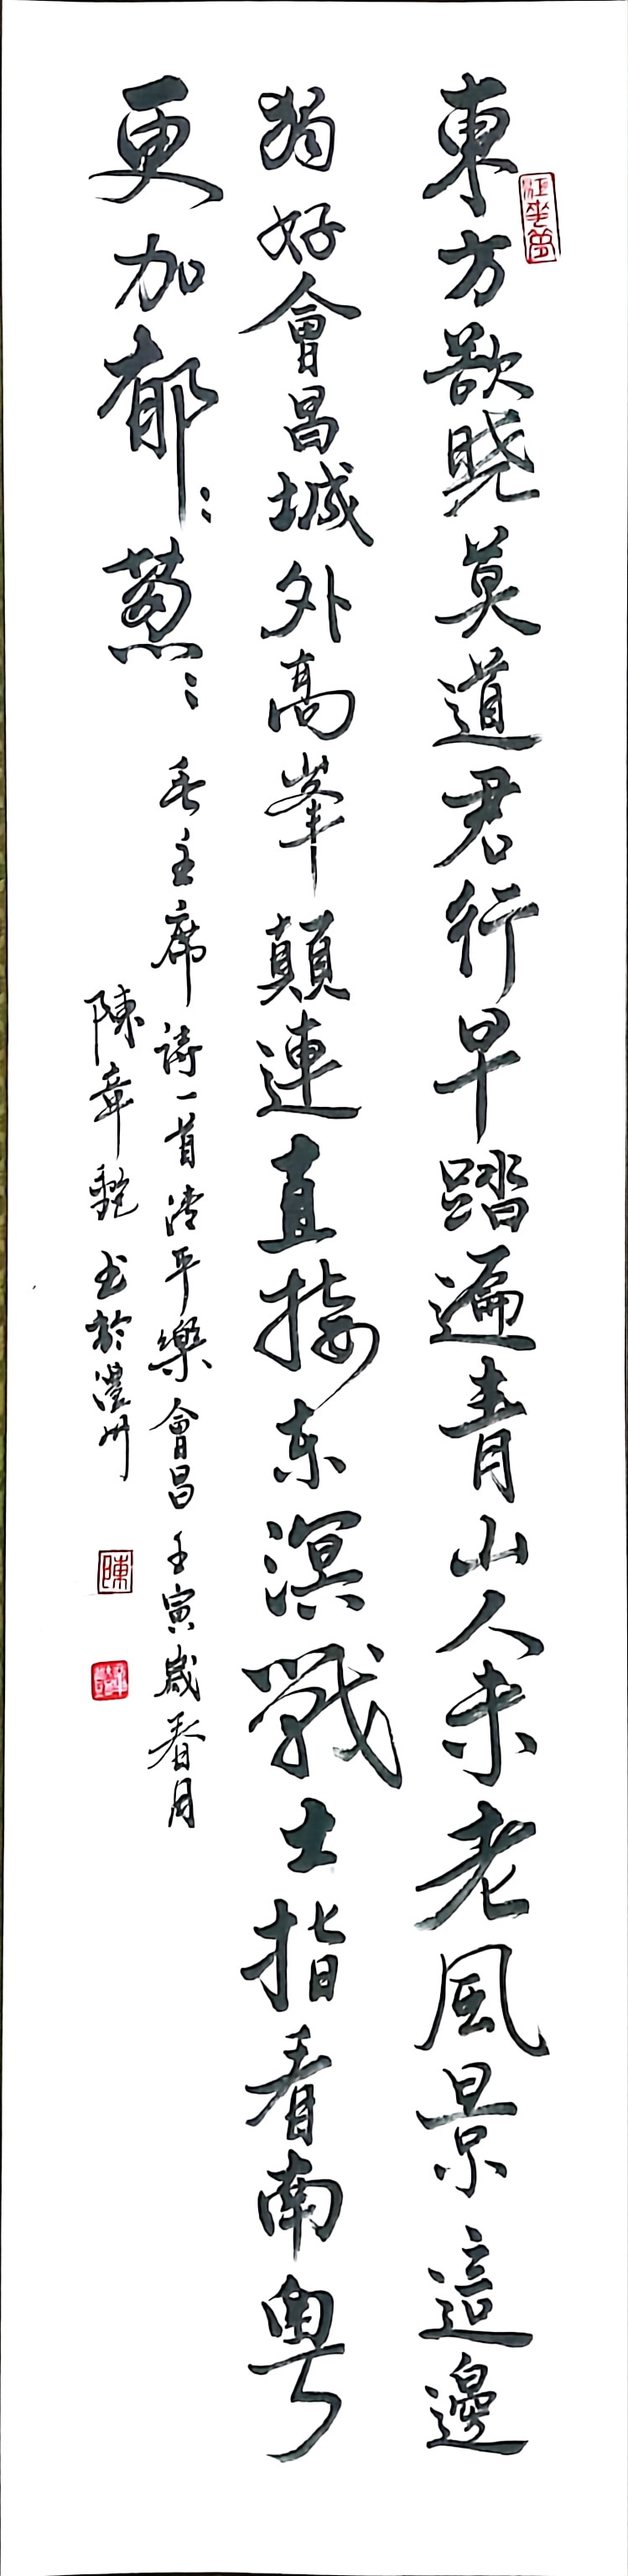 東方欲晓莫道君行早踏遍青山人未老風景這邊
獨好會昌城外高峯顛連直接东溟戰士指看南粵
更加郁：蔥：
毛主席詩一首清平樂會昌壬寅歲春月
陳章 书於澧州
陳